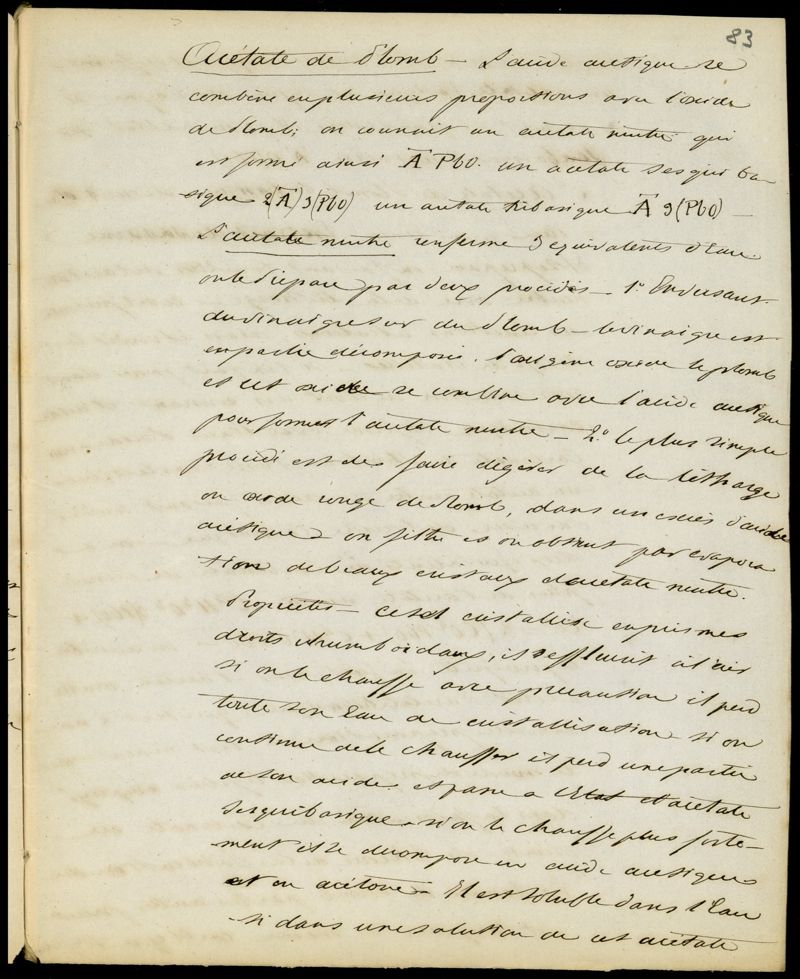 83
Acétate de Plomb – L'acide acétique se
combine en plusieurs proportions avec l'oxide
de Plomb; on connait un acétate neutre qui
est formé ainsi A PbO. un acétate sesquiba
sique 2(A) 3(PbO) un acétate tribasique A 3(PbO) –
L'acétate neutre renferme 3 équivalents d'Eau.
on le prépare par deux procédés – 1º En versant
du vinaigre sur du Plomb – le vinaigre est
en partie décomposé. l'oxigène oxide le plomb
et cet oxide se combine avec l'acide acétique
pour former l'acétate neutre – 2.º le plus simple
procédé est de faire digérer de la litharge
ou oxide rouge de Plomb, dans un excès d'acide
acétique on filtre et on obtient par évapora
tion de beaux cristaux d'acétate neutre.
Propriétés – ce sel cristallise en prismes
droits rhumboidaux, il s'effleurit à l'air
si on le chauffe avec précaution il perd
toute son Eau de cristallisation si on
continue de le chauffer il perd une partie
de son acide et passe à l'Etat d'acétate
sesquibasique. si on le chauffe plus forte–
ment il se décompose en acide acétique
et en acétone – Il est soluble dans l'Eau
si dans une solution de cet acétate